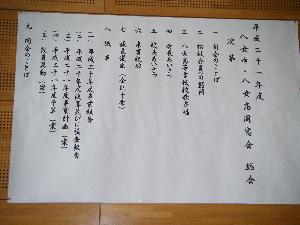 平成二十一年度
八女市・八女高同窓会 総会
次第
一 開会のことば
二 物故会員への黙祷
三 八女高等学校校歌斉唱
四 会長あいさつ
五 校長あいさつ
六 来賓祝辞
七 議長選出
八 議事
一、平成二十年度事業報告
二、平成二十年度決算並びに監査報告
三、平成二十一年度事業計画(案)
四、平成二十一年度予算(案)
五、役員改選(案)
九 閉会のことば